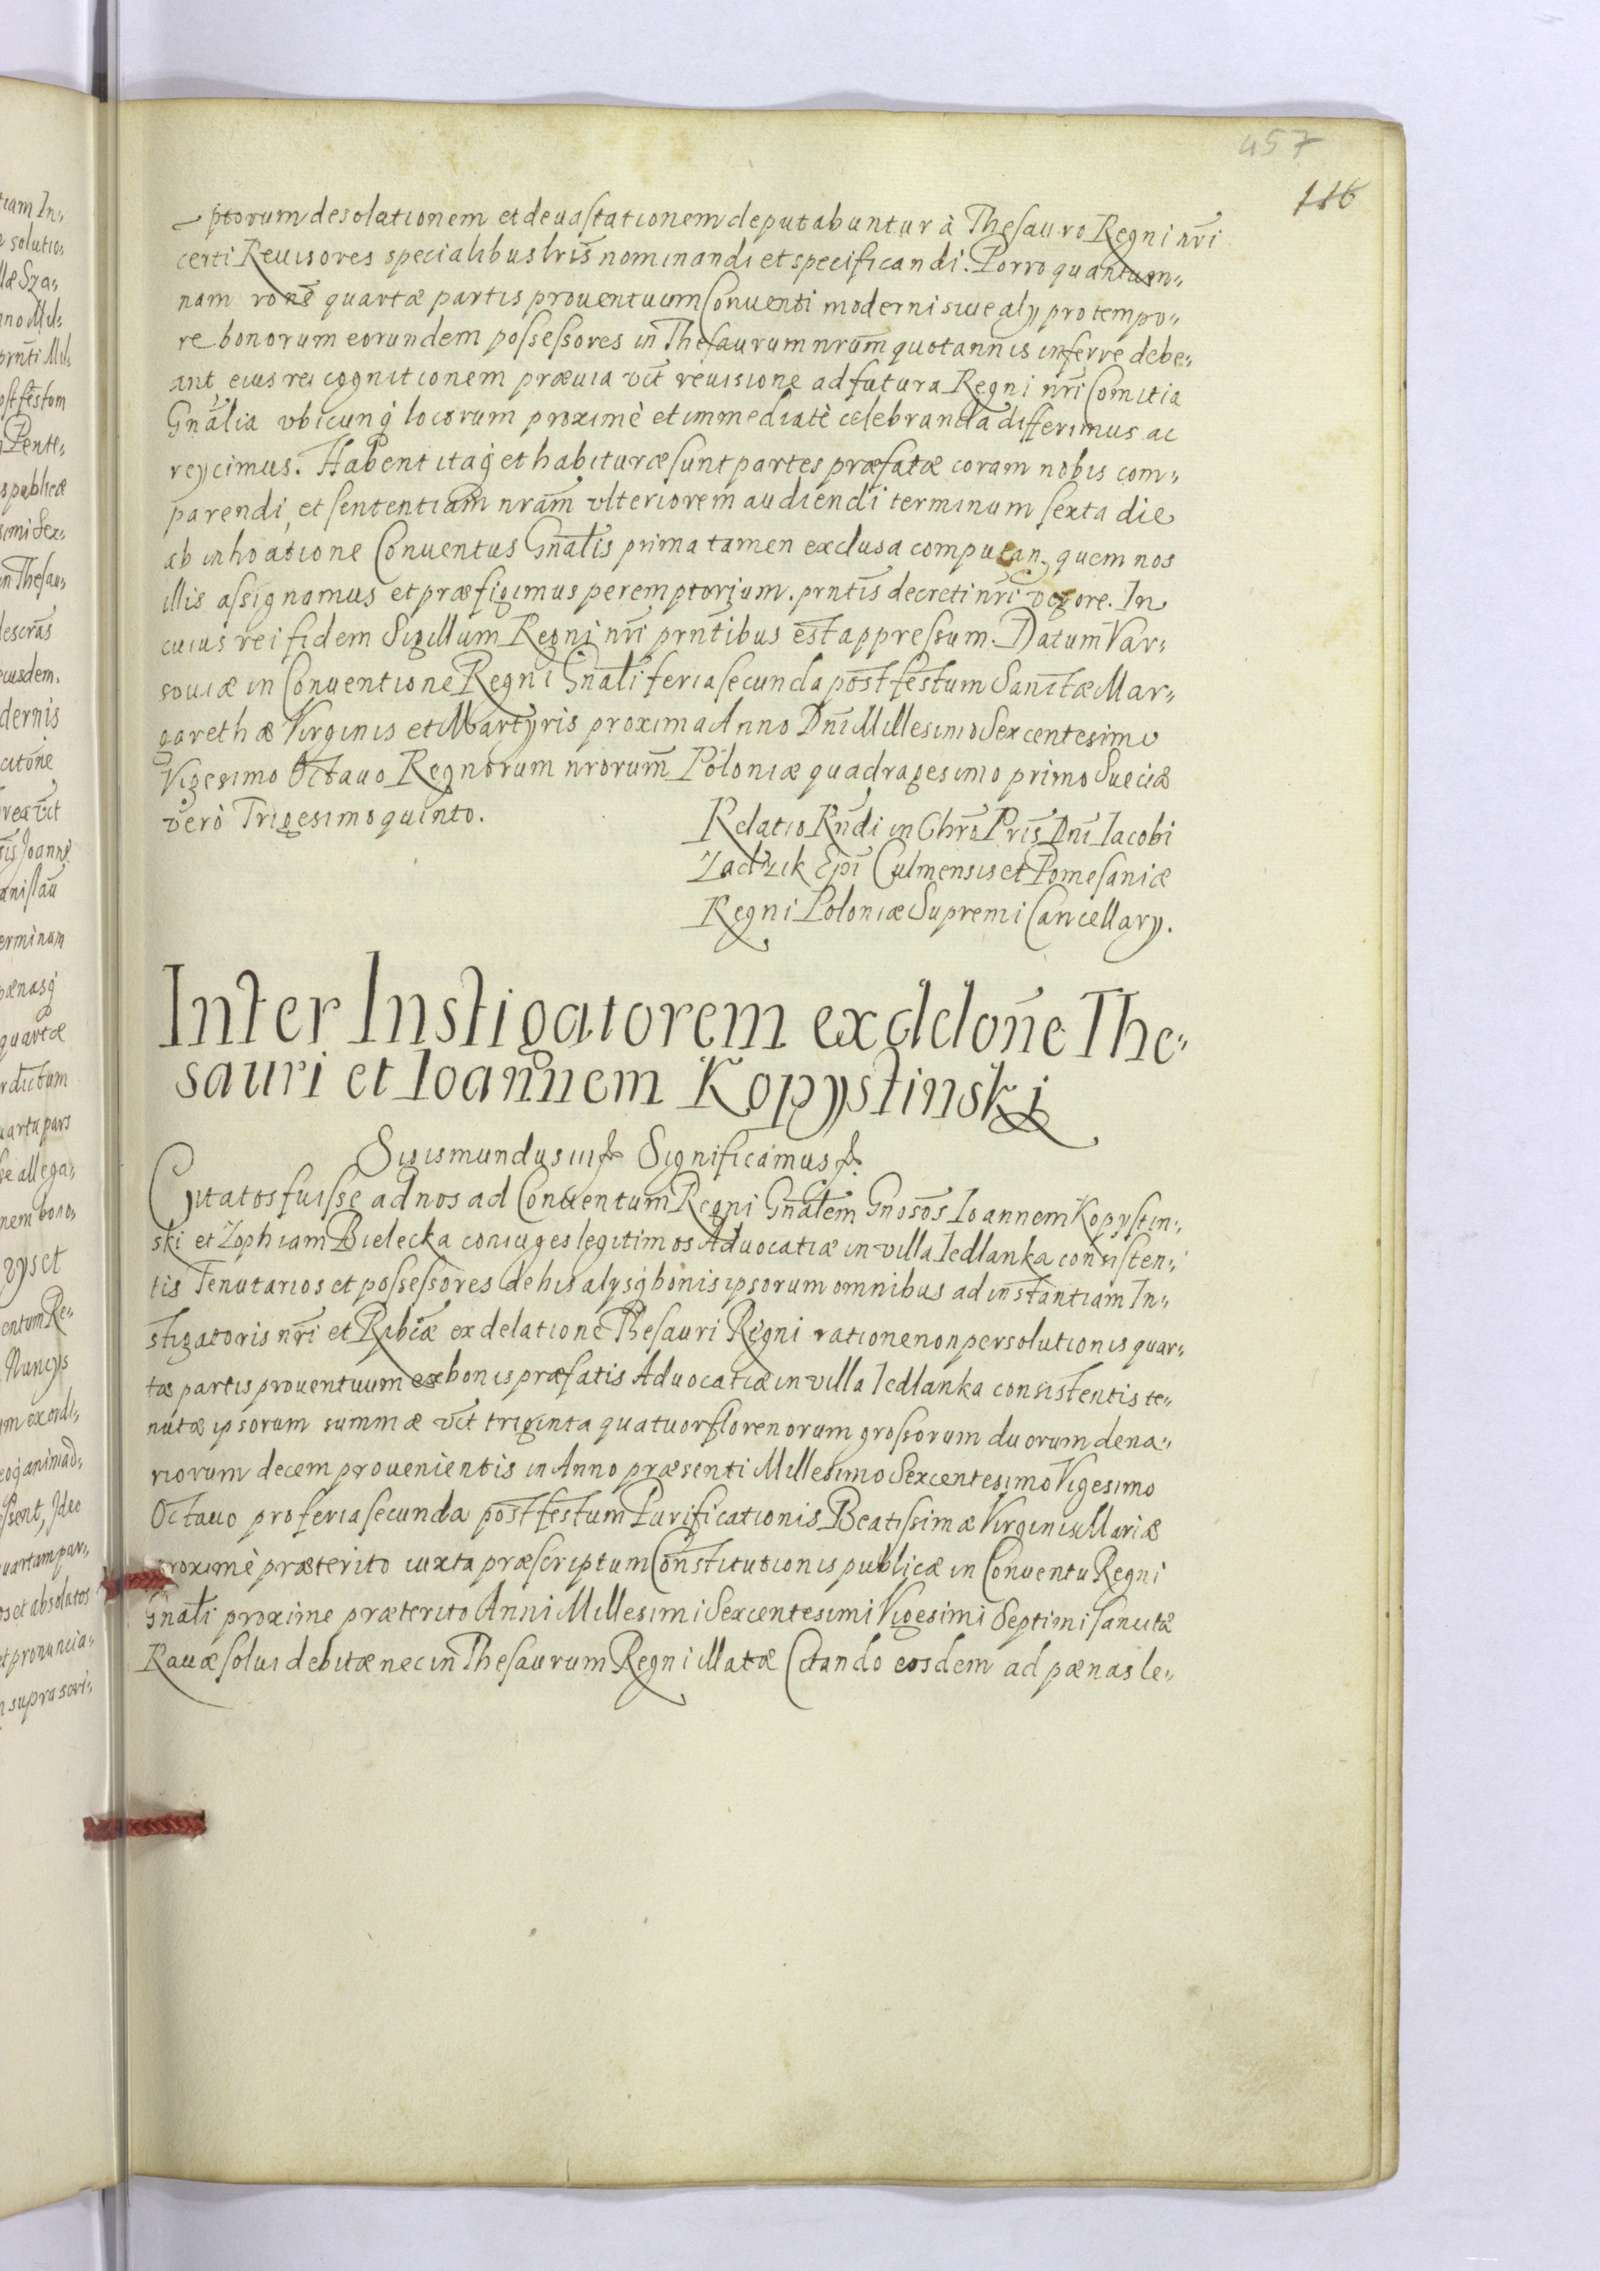 457
116
ptorum desolationem et deuastationem deputabuntur à Thesauro Regni nr̄i
certi Reuisores specialibus lr̄is nominandi et specificandi. Porro quantum„
nam rone quartæ partis prouentuum Conuenti moderni siue alij pro tempo„
re bonorum eorundem possessores in Thesaurum nrum̄ quotannis inferre debe„
ant eius rei cognitionem præuia vt̄ reuisione ad futura Regni nr̄i Comitia
Gnãlia vbicunq́ locorum proximè et immediatè celebranda differimus ac
reijcimus. Habent itaq́ et habituræ sunt partes præfatæ coram nobis com„
parendi, et sententiam nram̄ vlteriorem audiendi terminum sexta die
ab inhoatione Conuentus Gnalīs prima tamen exclusa computan. quem nos
illis assignamus et præfigimus peremptorium. prntīs decreti nr̄i vigore. In
cuius rei fidem Sigillum Regni nr̄i prntībus est appressum. Datum Var„
souiæ in Conuentione Regni Gnalī feria secunda post festum Sanctæ Mar„
garethæ Virginis et Martyris proxima Anno Dnī Millesimo Sexcentesimo
Vigesimo Octauo Regnorum nrorum̄ Poloniæ quadragesimo primo Sueciæ
verò Trigesimo quinto.
Relatio Rndī in Chrō Prīs Dnī Iacobi
Zadzik Epī Culmensis et Pomesaniæ
Regni Poloniæ Supremi Cancellarij.
Inter Instigatorem ex delonē The„
sauri et Ioannem Kopystinski
Sigismundus III Significamus
Citatos fuisse ad nos ad Conuentum Regni Gnalēm Gnosōs Ioannem Kopystin„
ski et Zophiam Bielecka coniuges legitimos Aduocatiæ in villa Iedlanka consisten„
tis Tenutarios et possessores de his alijsq́ bonis ipsorum omnibus ad instantiam In„
stigatoris nr̄i et Rpbīcæ ex delatione Thesauri Regni ratione non persolutionis quar„
tæ partis prouentuum ex bonis præfatis Aduocatiæ in villa Iedlanka consistentis te„
nutæ ipsorum summæ vt̄ triginta quatuor florenorum grossorum duorum dena„
riorum decem prouenientis in Anno præsenti Millesimo Sexcentesimo Vigesimo
Octauo pro feria secunda post festum Purificationis Beatissimæ Virginis Mariæ
proximè præterito iuxta præscriptum Constitutionis publicæ in Conuentu Regni
Gnalī proxime præterito Anni Millesimi Sexcentesimi Vigesimi Septimi sancitæ
Rauæ solui debitæ nec in Thesaurum Regni illatæ Citando eosdem ad pænas le„